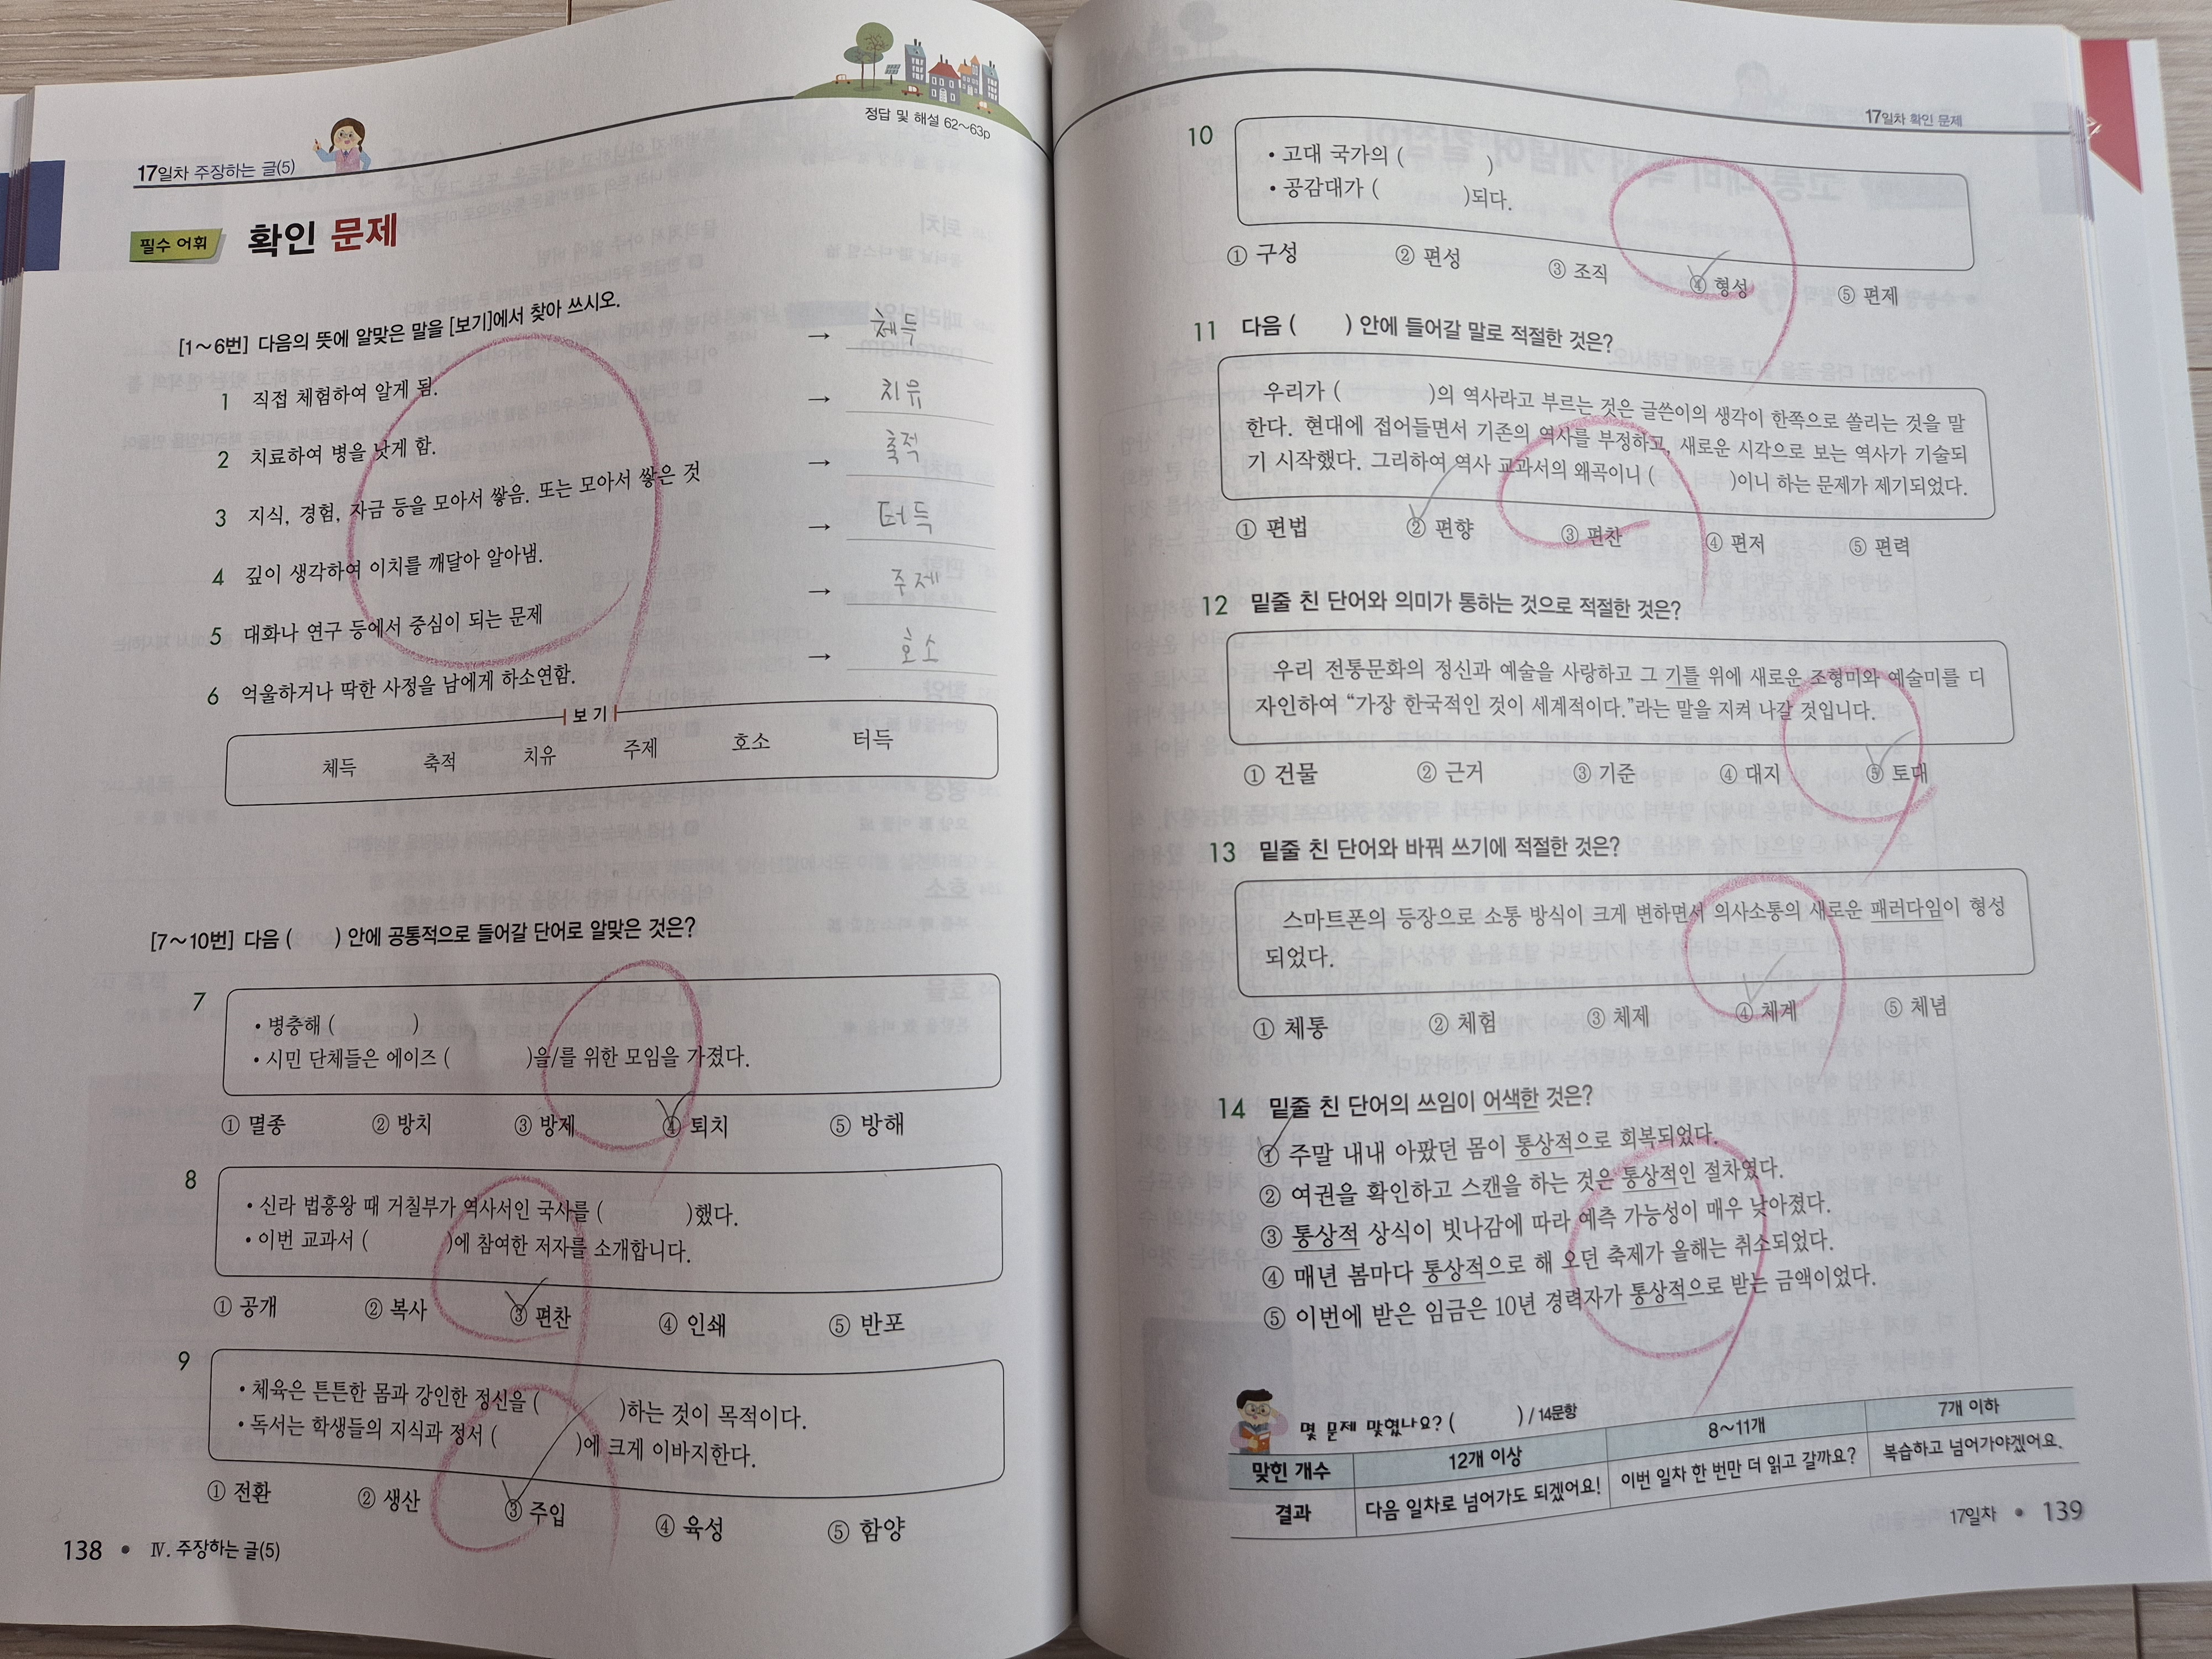 정답 및 해설 62~63p
17일차 주장하는 글(5)
필수 어휘 확인 문제
[1~6번] 다음의 뜻에 알맞은 말을 [보기]에서 찾아 쓰시오.
1 직접 체험하여 알게 됨. → 체득
2 치료하여 병을 낫게 함. → 치유
3 지식, 경험, 자금 등을 모아서 쌓음. 또는 모아서 쌓은 것 → 축적
4 깊이 생각하여 이치를 깨달아 알아냄. → 터득
5 대화나 연구 등에서 중심이 되는 문제 → 주제
6 억울하거나 딱한 사정을 남에게 하소연함. → 호소
보기
체득 축적 치유 주제 호소 터득
[7~10번] 다음 ( ) 안에 공통적으로 들어갈 단어로 알맞은 것은?
7
• 병충해 ( )
• 시민 단체들은 에이즈 ( )을/를 위한 모임을 가졌다.
① 멸종 ② 방치 ③ 방제 ④ 퇴치 ⑤ 방해
8
• 신라 법흥왕 때 거칠부가 역사서인 국사를 ( )했다.
• 이번 교과서 ( )에 참여한 저자를 소개합니다.
① 공개 ② 복사 ③ 편찬 ④ 인쇄 ⑤ 반포
9
• 체육은 튼튼한 몸과 강인한 정신을 ( )하는 것이 목적이다.
• 독서는 학생들의 지식과 정서 ( )에 크게 이바지한다.
① 전환 ② 생산 ③ 주입 ④ 육성 ⑤ 함양
138 • Ⅳ. 주장하는 글(5)
17일차 확인 문제
10
• 고대 국가의 ( )
• 공감대가 ( )되다.
① 구성 ② 편성 ③ 조직 ④ 형성 ⑤ 편제
11 다음 ( ) 안에 들어갈 말로 적절한 것은?
우리가 ( )의 역사라고 부르는 것은 글쓴이의 생각이 한쪽으로 쏠리는 것을 말
한다. 현대에 접어들면서 기존의 역사를 부정하고, 새로운 시각으로 보는 역사가 기술되
기 시작했다. 그리하여 역사 교과서의 왜곡이니 ( )이니 하는 문제가 제기되었다.
① 편법 ② 편향 ③ 편찬 ④ 편저 ⑤ 편력
12 밑줄 친 단어와 의미가 통하는 것으로 적절한 것은?
우리 전통문화의 정신과 예술을 사랑하고 그 기틀 위에 새로운 조형미와 예술미를 디
자인하여 “가장 한국적인 것이 세계적이다.”라는 말을 지켜 나갈 것입니다.
① 건물 ② 근거 ③ 기준 ④ 대지 ⑤ 토대
13 밑줄 친 단어와 바꿔 쓰기에 적절한 것은?
스마트폰의 등장으로 소통 방식이 크게 변하면서 의사소통의 새로운 패러다임이 형성
되었다.
① 체통 ② 체험 ③ 체제 ④ 체계 ⑤ 체념
14 밑줄 친 단어의 쓰임이 어색한 것은?
① 주말 내내 아팠던 몸이 통상적으로 회복되었다.
② 여권을 확인하고 스캔을 하는 것은 통상적인 절차였다.
③ 통상적 상식이 빗나감에 따라 예측 가능성이 매우 낮아졌다.
④ 매년 봄마다 통상적으로 해 오던 축제가 올해는 취소되었다.
⑤ 이번에 받은 임금은 10년 경력자가 통상적으로 받는 금액이었다.
몇 문제 맞혔나요? ( ) / 14문항
맞힌 개수 12개 이상 8~11개 7개 이하
결과 다음 일차로 넘어가도 되겠어요! 이번 일차 한 번만 더 읽고 갈까요? 복습하고 넘어가야겠어요.
17일차 • 139